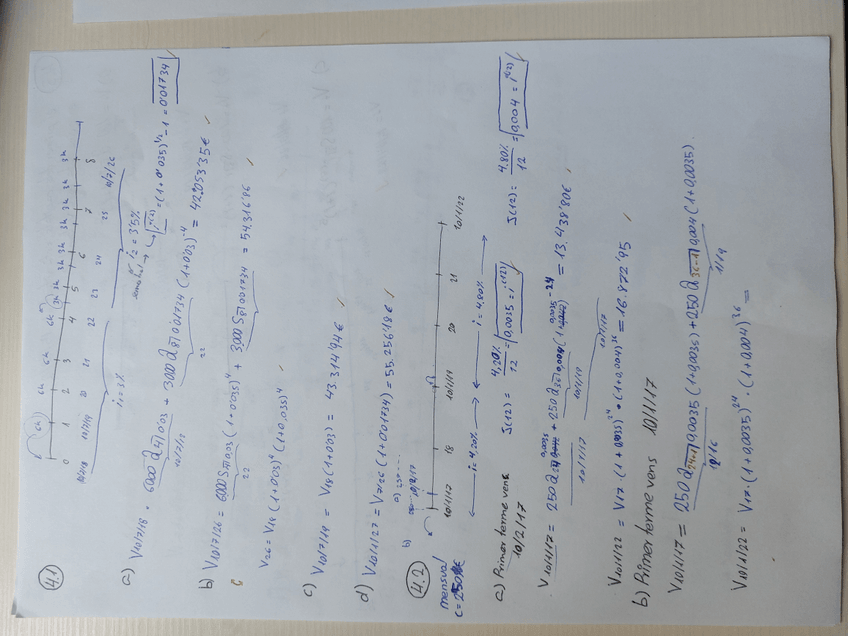 4.1
6k 6k 6k 6k 3k 3k 3k 3k 3k 3k 3k 3k
0 1 2 3 4 5 6 7 8
10/7/18 10/7/19 20 21 22 23 24 25 10/7/26
i = 3% i2 = 3'5%
semestral → i(2) = (1+0'035)^1/2 - 1 = 0'01734
a) V10/7/18 = 6000 a4̅|0'03 + 3000 a8̅|0'01734 (1+0'03)^-4 = 42.053'35€
b) V10/7/26 = 6000 S4̅|0,03 (1+0'035)^4 + 3000 S8̅|0'01734 = 54.316'86
22
V26 = V18 (1+0'03)^4 (1+0,035)^4
c) V10/7/19 = V18 (1+0'03) = 43.314'94€
d) V10/1/27 = V7/26 (1+0'01734) = 55.256'18€
4.2
mensual
10/1/17 18 10/1/19 20 21 10/1/22
i = 4,20% i = 4.80%
a) Primer terme vens
10/2/17
J(12) = 4,20%/12 = 0,0035 = i(12)
J(12) = 4.80%/12 = 0,004 = i(12)
V10/1/17 = 250 a24̅|0,0035 + 250 a36̅|0,004 (1+0,0035)^-24 = 13.438'80€
10/1/17 10/1/19 10/1/17
V10/1/22 = V17 · (1+0,0035)^24 · (1+0,004)^36 = 16.872'95
b) Primer terme vens 10/1/17
V10/1/17 = 250 a24̅|0,0035 (1+0,0035) + 250 a36̅|0,004 (1+0,0035)
V10/1/22 = V17 · (1+0,0035)^24 · (1+0,004)^36 =